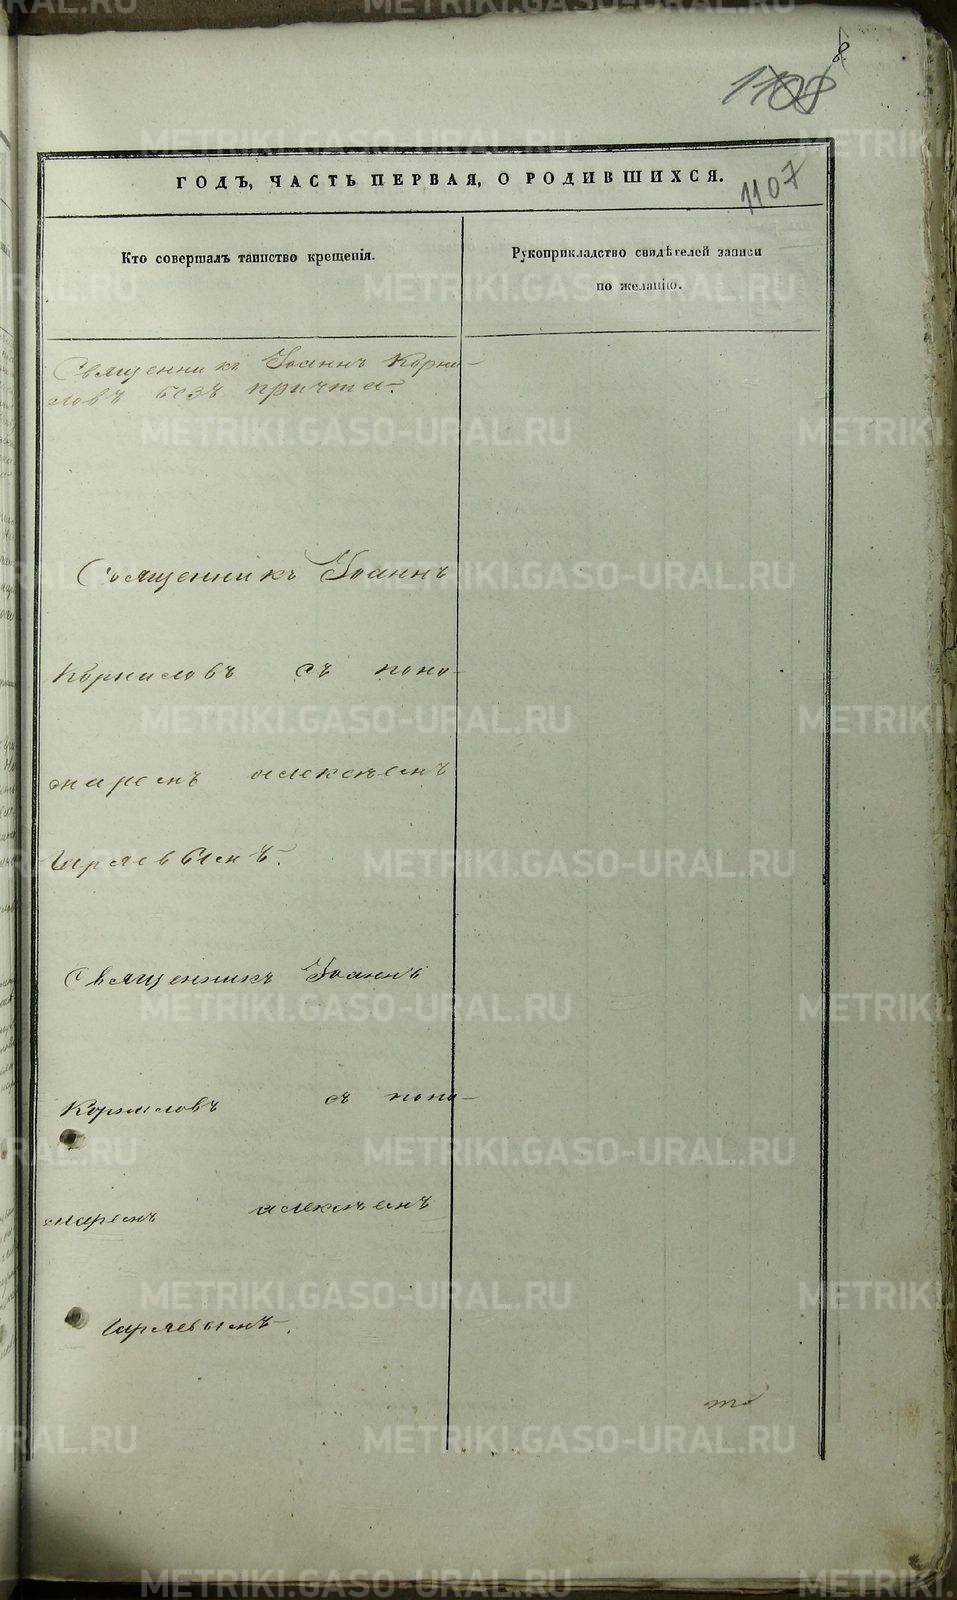 8.
1108
ГОДЪ, ЧАСТЬ ПЕРВАЯ, О РОДИВШИХСЯ.
1107
Кто совершалъ таинство крещенія.
Рукоприкладство свидѣтелей записи
по желанію.
Священникъ Іоаннъ Корни-
ловъ безъ причта.
Священникъ Іоаннъ
Корниловъ съ поно-
маремъ Алексѣемъ
Священникъ Іоаннъ
Корниловъ съ поно-
маремъ Алексѣемъ
METRIKI.GASO-URAL.RU